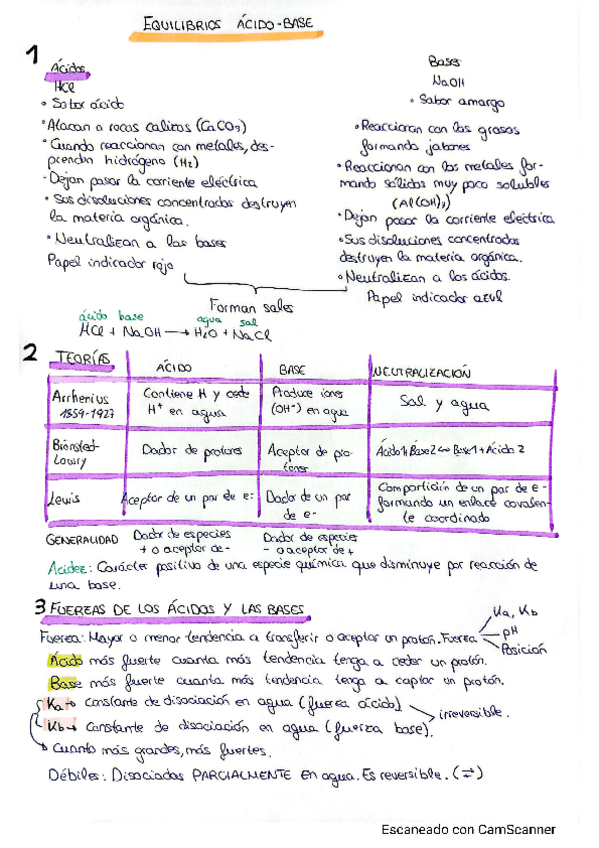 EQUILIBRIOS ÁCIDO-BASE
1
Ácidos
HCl
• Sabor ácido
• Atacan a rocas calizas (CaCO3)
• Cuando reaccionan con metales, des-
prenden hidrógeno (H2)
- Dejan pasar la corriente eléctrica
• Sus disoluciones concentradas destruyen
la materia orgánica.
• Neutralizan a las bases
Papel indicador rojo
Bases
NaOH
• Sabor amargo
• Reaccionan con las grasas
formando jabones
• Reaccionan con los metales for-
mando sólidos muy poco solubles
(Al(OH)3)
• Dejan pasar la corriente eléctrica
• Sus disoluciones concentradas
destruyen la materia orgánica.
• Neutralizan a los ácidos.
Papel indicador azul
Forman sales
ácido base agua sal
HCl + NaOH → H2O + NaCl
2 TEORÍAS
ÁCIDO BASE NEUTRALIZACIÓN
Arrhenius
1859-1927
Contiene H y cede
H+ en agua
Produce iones
(OH-) en agua
Sal y agua
Brönsted-
Lowry
Dador de protones
Aceptor de pro-
tones
Ácido1+Base2 ↔ Base1+Ácido2
Lewis
Aceptor de un par de e-
Dador de un par
de e-
Compartición de un par de e-
formando un enlace covalen-
te coordinado
GENERALIDAD
Dador de especies
+ o aceptor de -
Dador de especies
- o aceptor de +
Acidez: Carácter positivo de una especie química que disminuye por reacción de
una base.
3 FUERZAS DE LOS ÁCIDOS Y LAS BASES
Fuerza: Mayor o menor tendencia a transferir o aceptar un protón. Fuerza
Ka, Kb
pH
Posición
Ácido más fuerte cuanta más tendencia tenga a ceder un protón.
Base más fuerte cuanta más tendencia tenga a captar un protón.
Ka → Constante de disociación en agua (fuerza ácido)
Kb → Constante de disociación en agua (fuerza base).
irreversible.
Cuanto más grandes, más fuertes.
Débiles: Disociadas PARCIALMENTE en agua. Es reversible. (⇌)
Escaneado con CamScanner